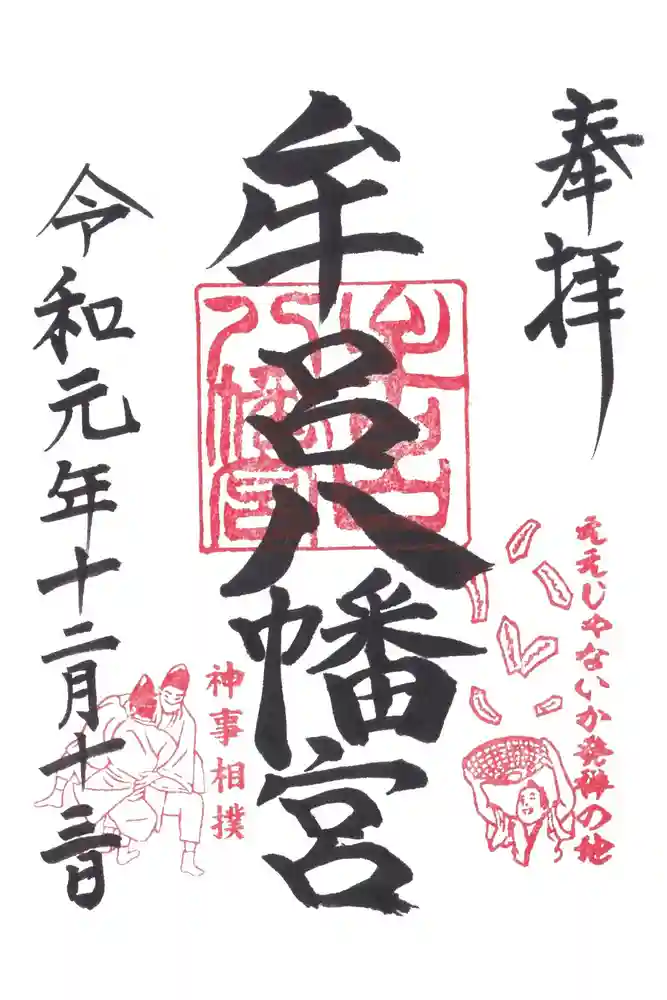 奉拝
牟呂八幡宮
令和元年十二月十三日
ええじゃないか発祥の地
神事相撲
牟呂
八幡宮